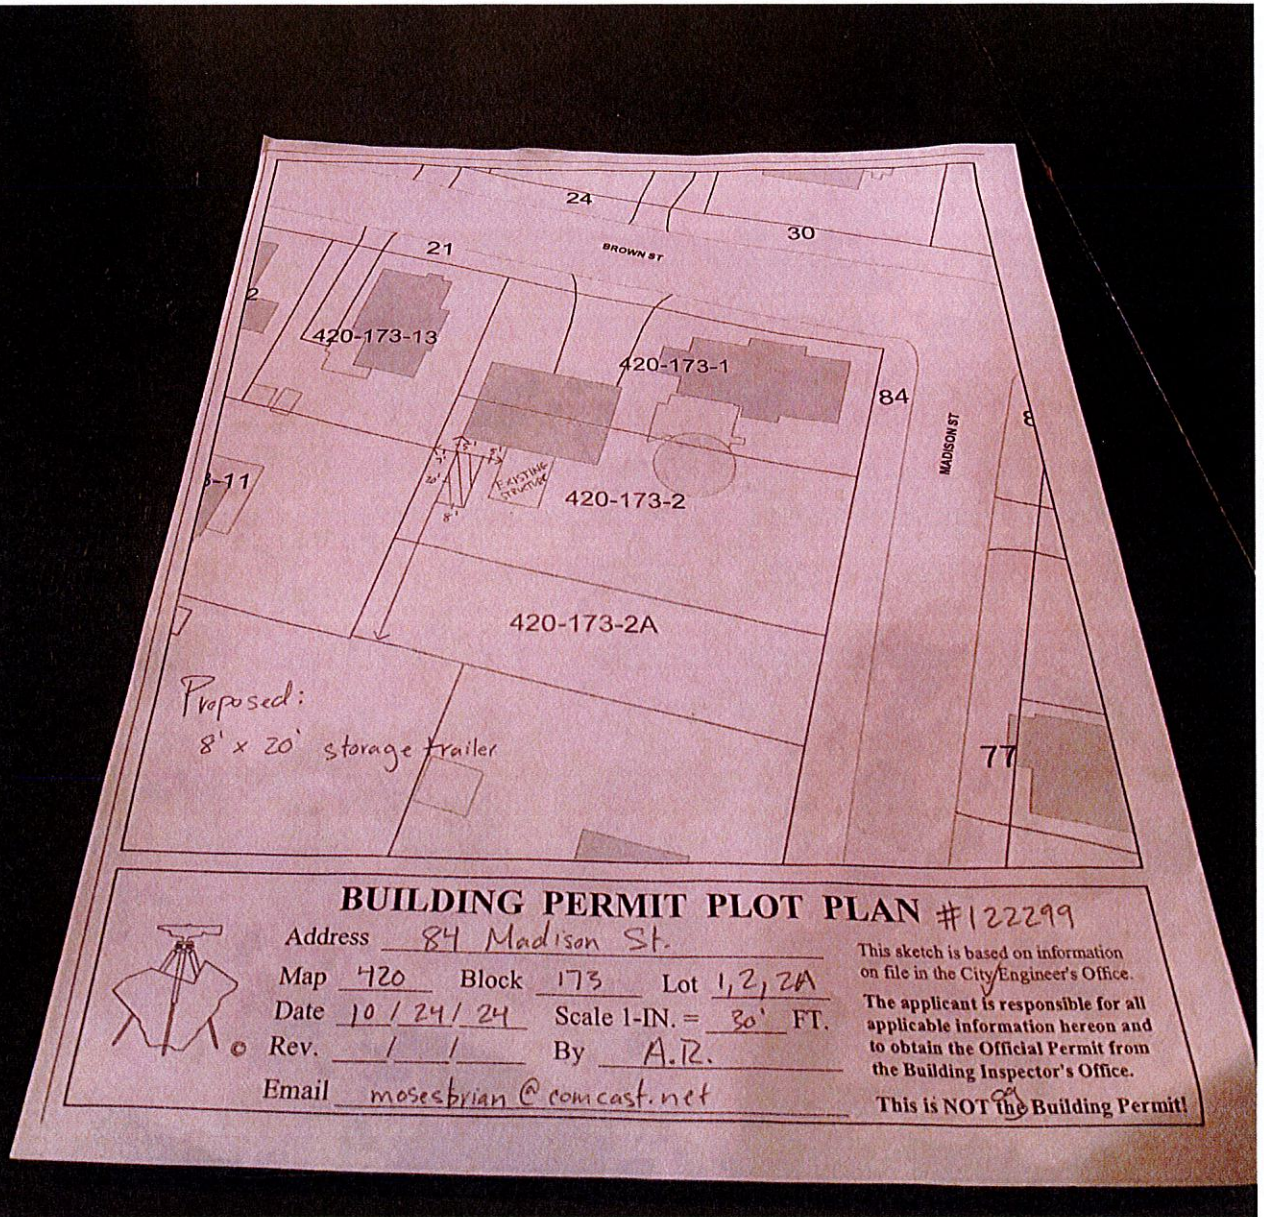 24
30
21
BROWN ST
2
420-173-13
420-173-1
84
8
MADISON ST
-11
5'
20'
8'
EXISTING
STRUCTURE
8'
420-173-2
420-173-2A
Proposed:
8' x 20' storage trailer
77
BUILDING PERMIT PLOT PLAN #122299
Address 84 Madison St.
Map 420 Block 173 Lot 1, 2, 2A
Date 10 / 24 / 24 Scale 1-IN. = 30' FT.
Rev. / / By A.R.
Email mosesbrian@comcast.net
©
This sketch is based on information
on file in the City Engineer's Office.
The applicant is responsible for all
applicable information hereon and
to obtain the Official Permit from
the Building Inspector's Office.
This is NOT the Building Permit!